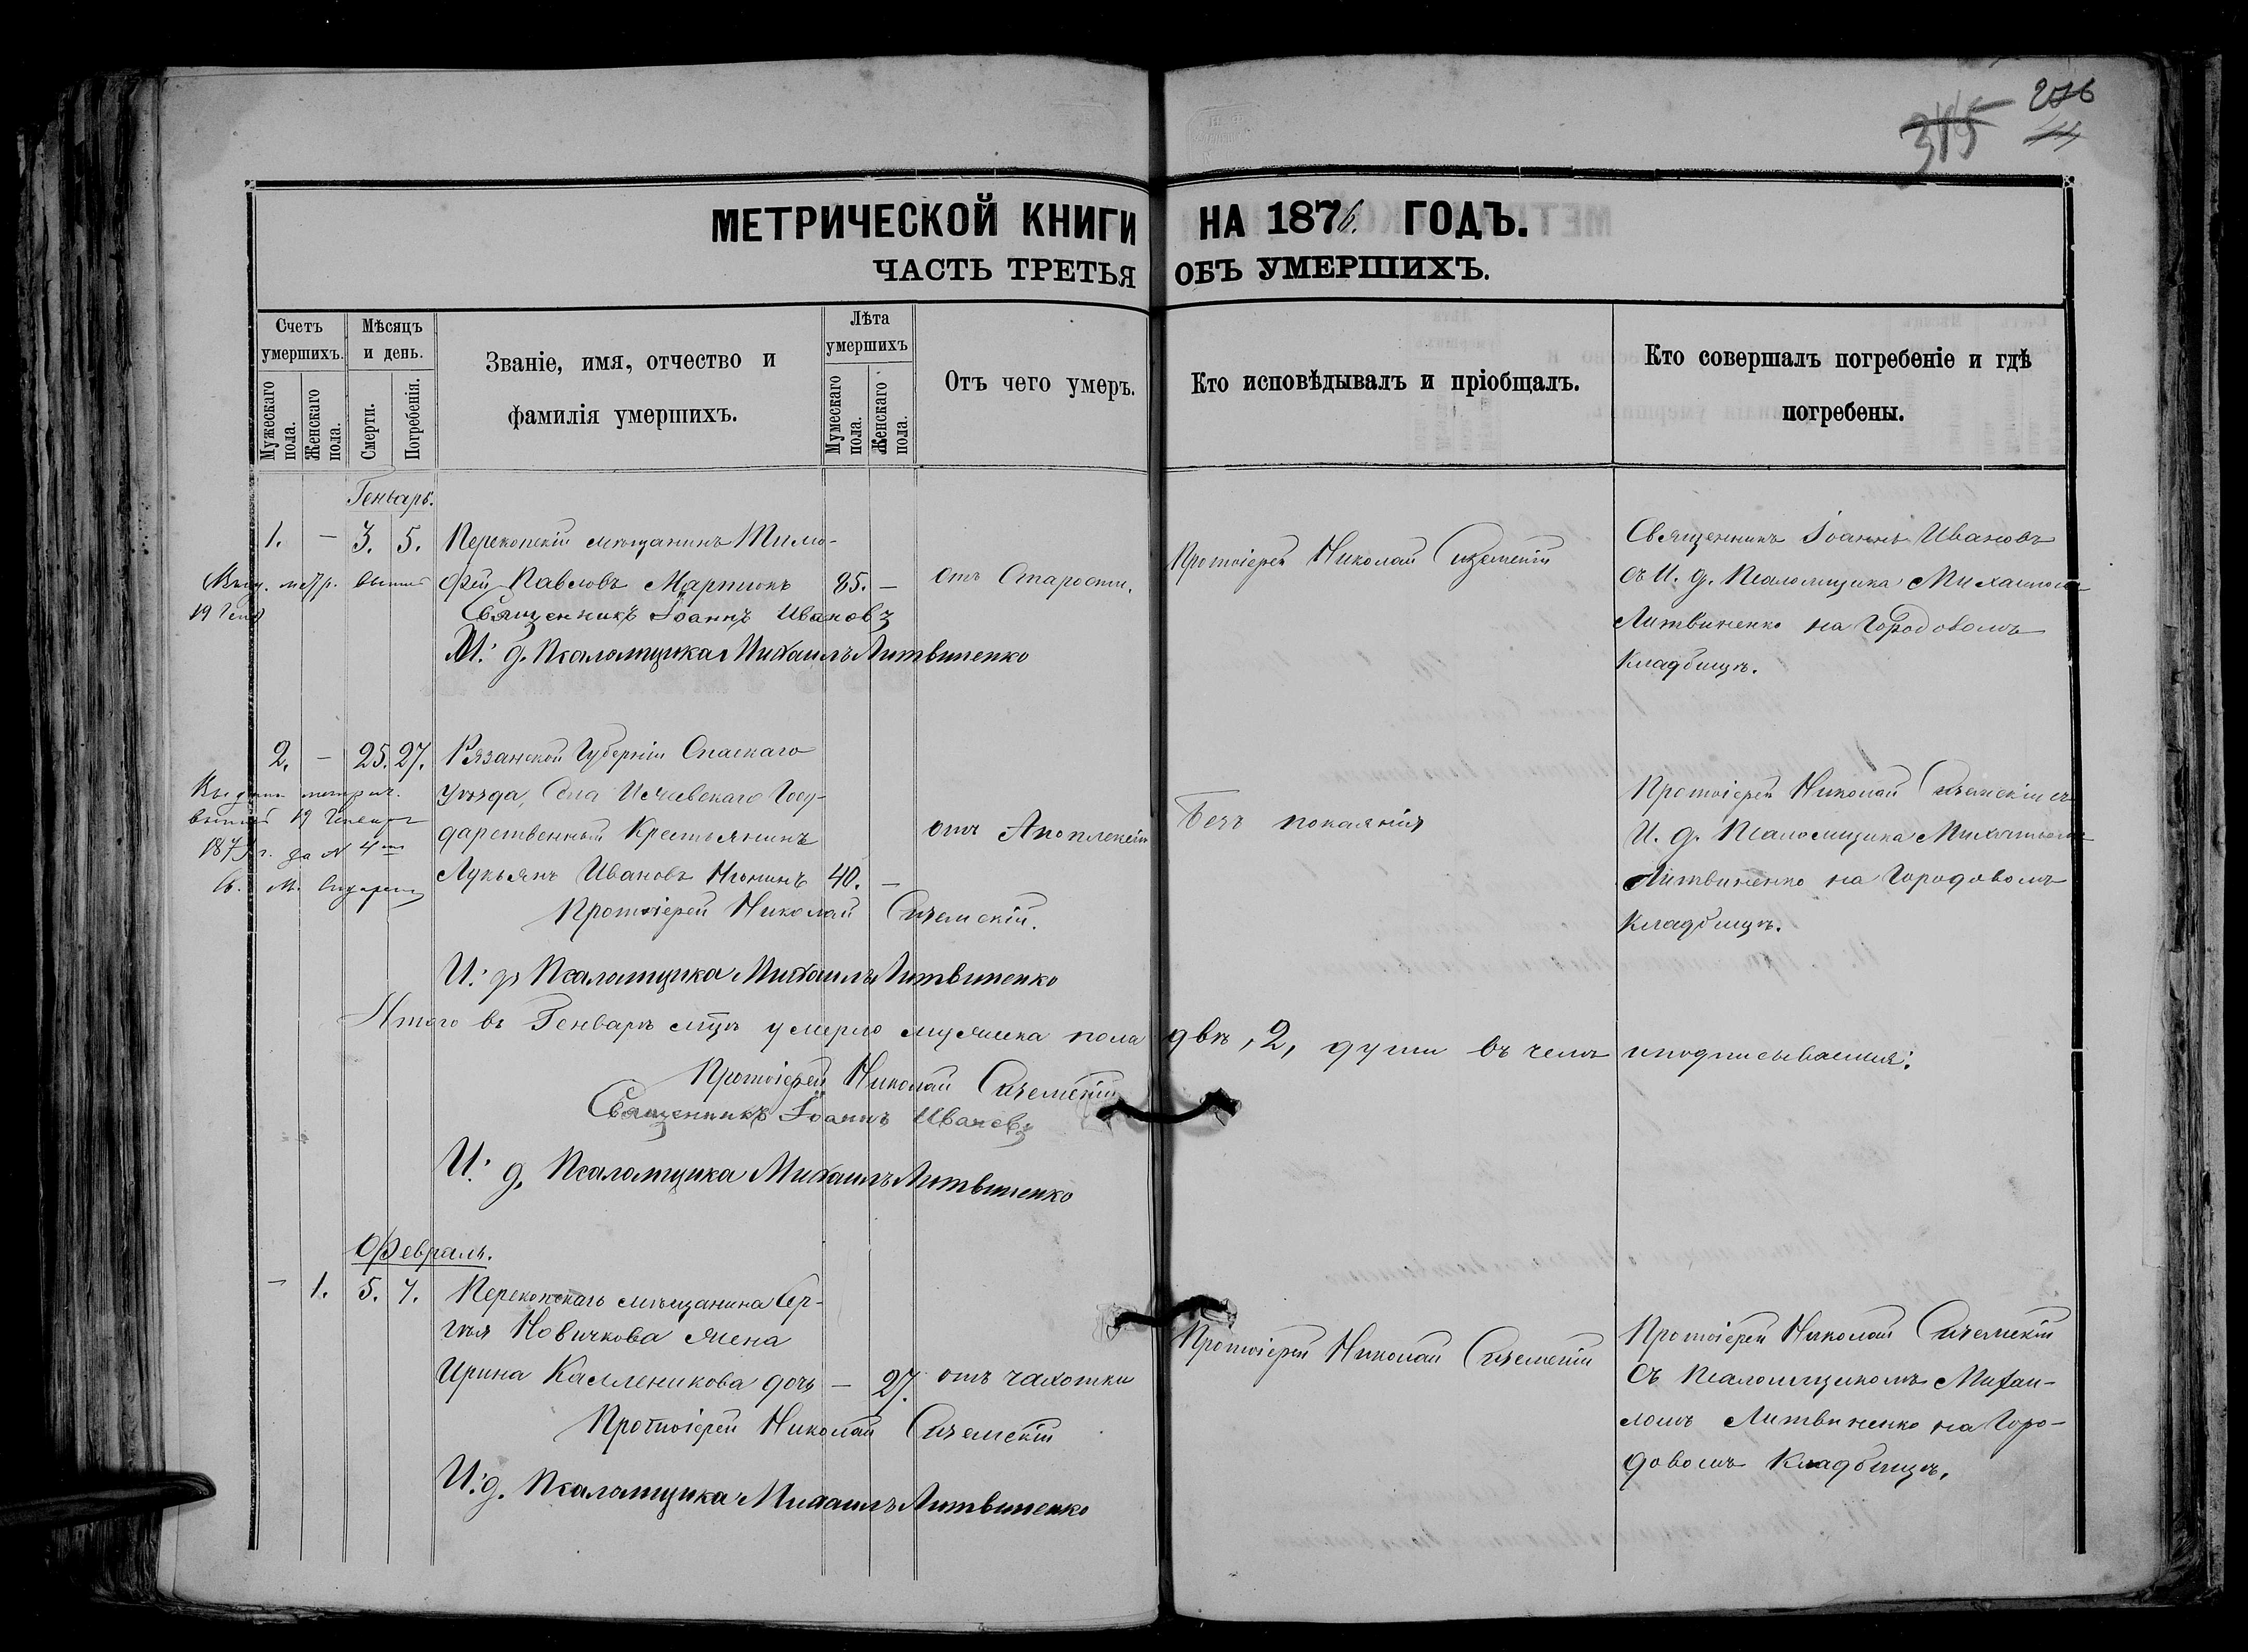 206
315
МЕТРИЧЕСКОЙ КНИГИ НА 1876. ГОДЪ.
ЧАСТЬ ТРЕТЬЯ ОБЪ УМЕРШИХЪ.
Счетъ умершихъ.
Мужескаго пола.
Женскаго пола.
Мѣсяцъ и день.
Смерти.
Погребенія.
Званіе, имя, отчество и
фамилія умершихъ.
Лѣта умершихъ
Мужескаго пола.
Женскаго пола.
Отъ чего умеръ.
Кто исповѣдывалъ и пріобщалъ.
Кто совершалъ погребеніе и гдѣ
погребены.
Генварь.
1. — 3. 5. Перекопскій мѣщанинъ Тимо-
фей Павловъ Мартюкъ 85. —
отъ Старости.
Протоіерей Николай
Священникъ Іоаннъ Ивановъ
съ И. д. Псаломщика Михаиломъ
Литвиненко на Городовомъ
Кладбищѣ.
Священникъ Іоаннъ Ивановъ
И. д. Псаломщика Михаилъ Литвиненко
2. — 25. 27. Рязанской Губерніи Спаскаго
уѣзда, Села Госу-
дарственный Крестьянинъ
Лукьянъ Ивановъ 40. —
отъ Апоплексіи
Безъ покаянія
Протоіерей Николай съ
И. д. Псаломщика Михаиломъ
Литвиненко на Городовомъ
Кладбищѣ.
Протоіерей Николай
И. д. Псаломщика Михаилъ Литвиненко
Итого въ Генварѣ мцѣ умерло мужеска пола двѣ, 2, души въ чемъ и подписываемся:
Протоіерей Николай
Священникъ Іоаннъ Ивановъ
И. д. Псаломщика Михаилъ Литвиненко
Февраль.
— 1. 5. 7. Перекопскаго мѣщанина Сер-
гѣя Новичкова жена
Ирина Калленикова дочь — 27.
отъ чахотки
Протоіерей Николай
Протоіерей Николай
Съ Псаломщикомъ Михаи-
ломъ Литвиненко на Горо-
довомъ Кладбищѣ.
Протоіерей Николай
И. д. Псаломщика Михаилъ Литвиненко